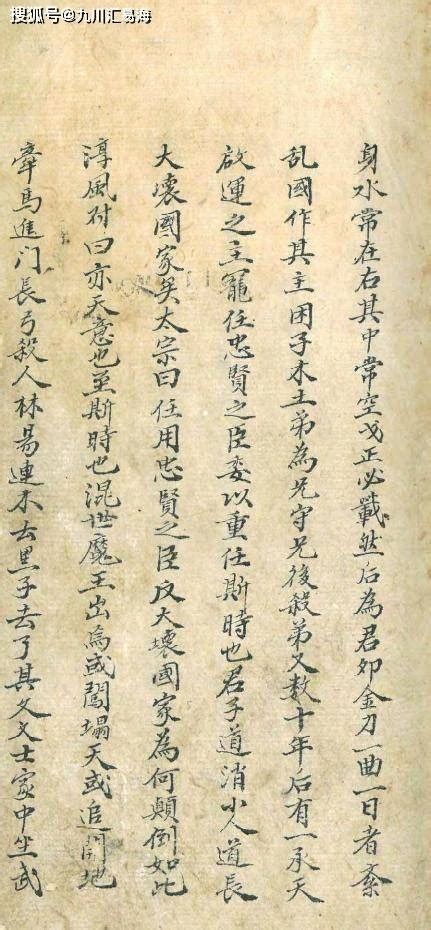 搜狐号@九川汇易海
身水常在右其中常空戈正必戴然后为君卯金刀一曲一日者紊
乱國作其主困子木土弟為兄守兄後殺弟又数十年后有一承天
啟運之主罷任忠賢之臣委以重任斯時也君子道消小人道長
大壞國家矣太宗曰任用忠賢之臣反大壞國家為何顛倒如此
淳風对曰亦天意也至斯時也混世魔王出焉或闖塌天或追開地
牽馬進门長弓殺人林易連木去黑子去了其文文士家中坐武